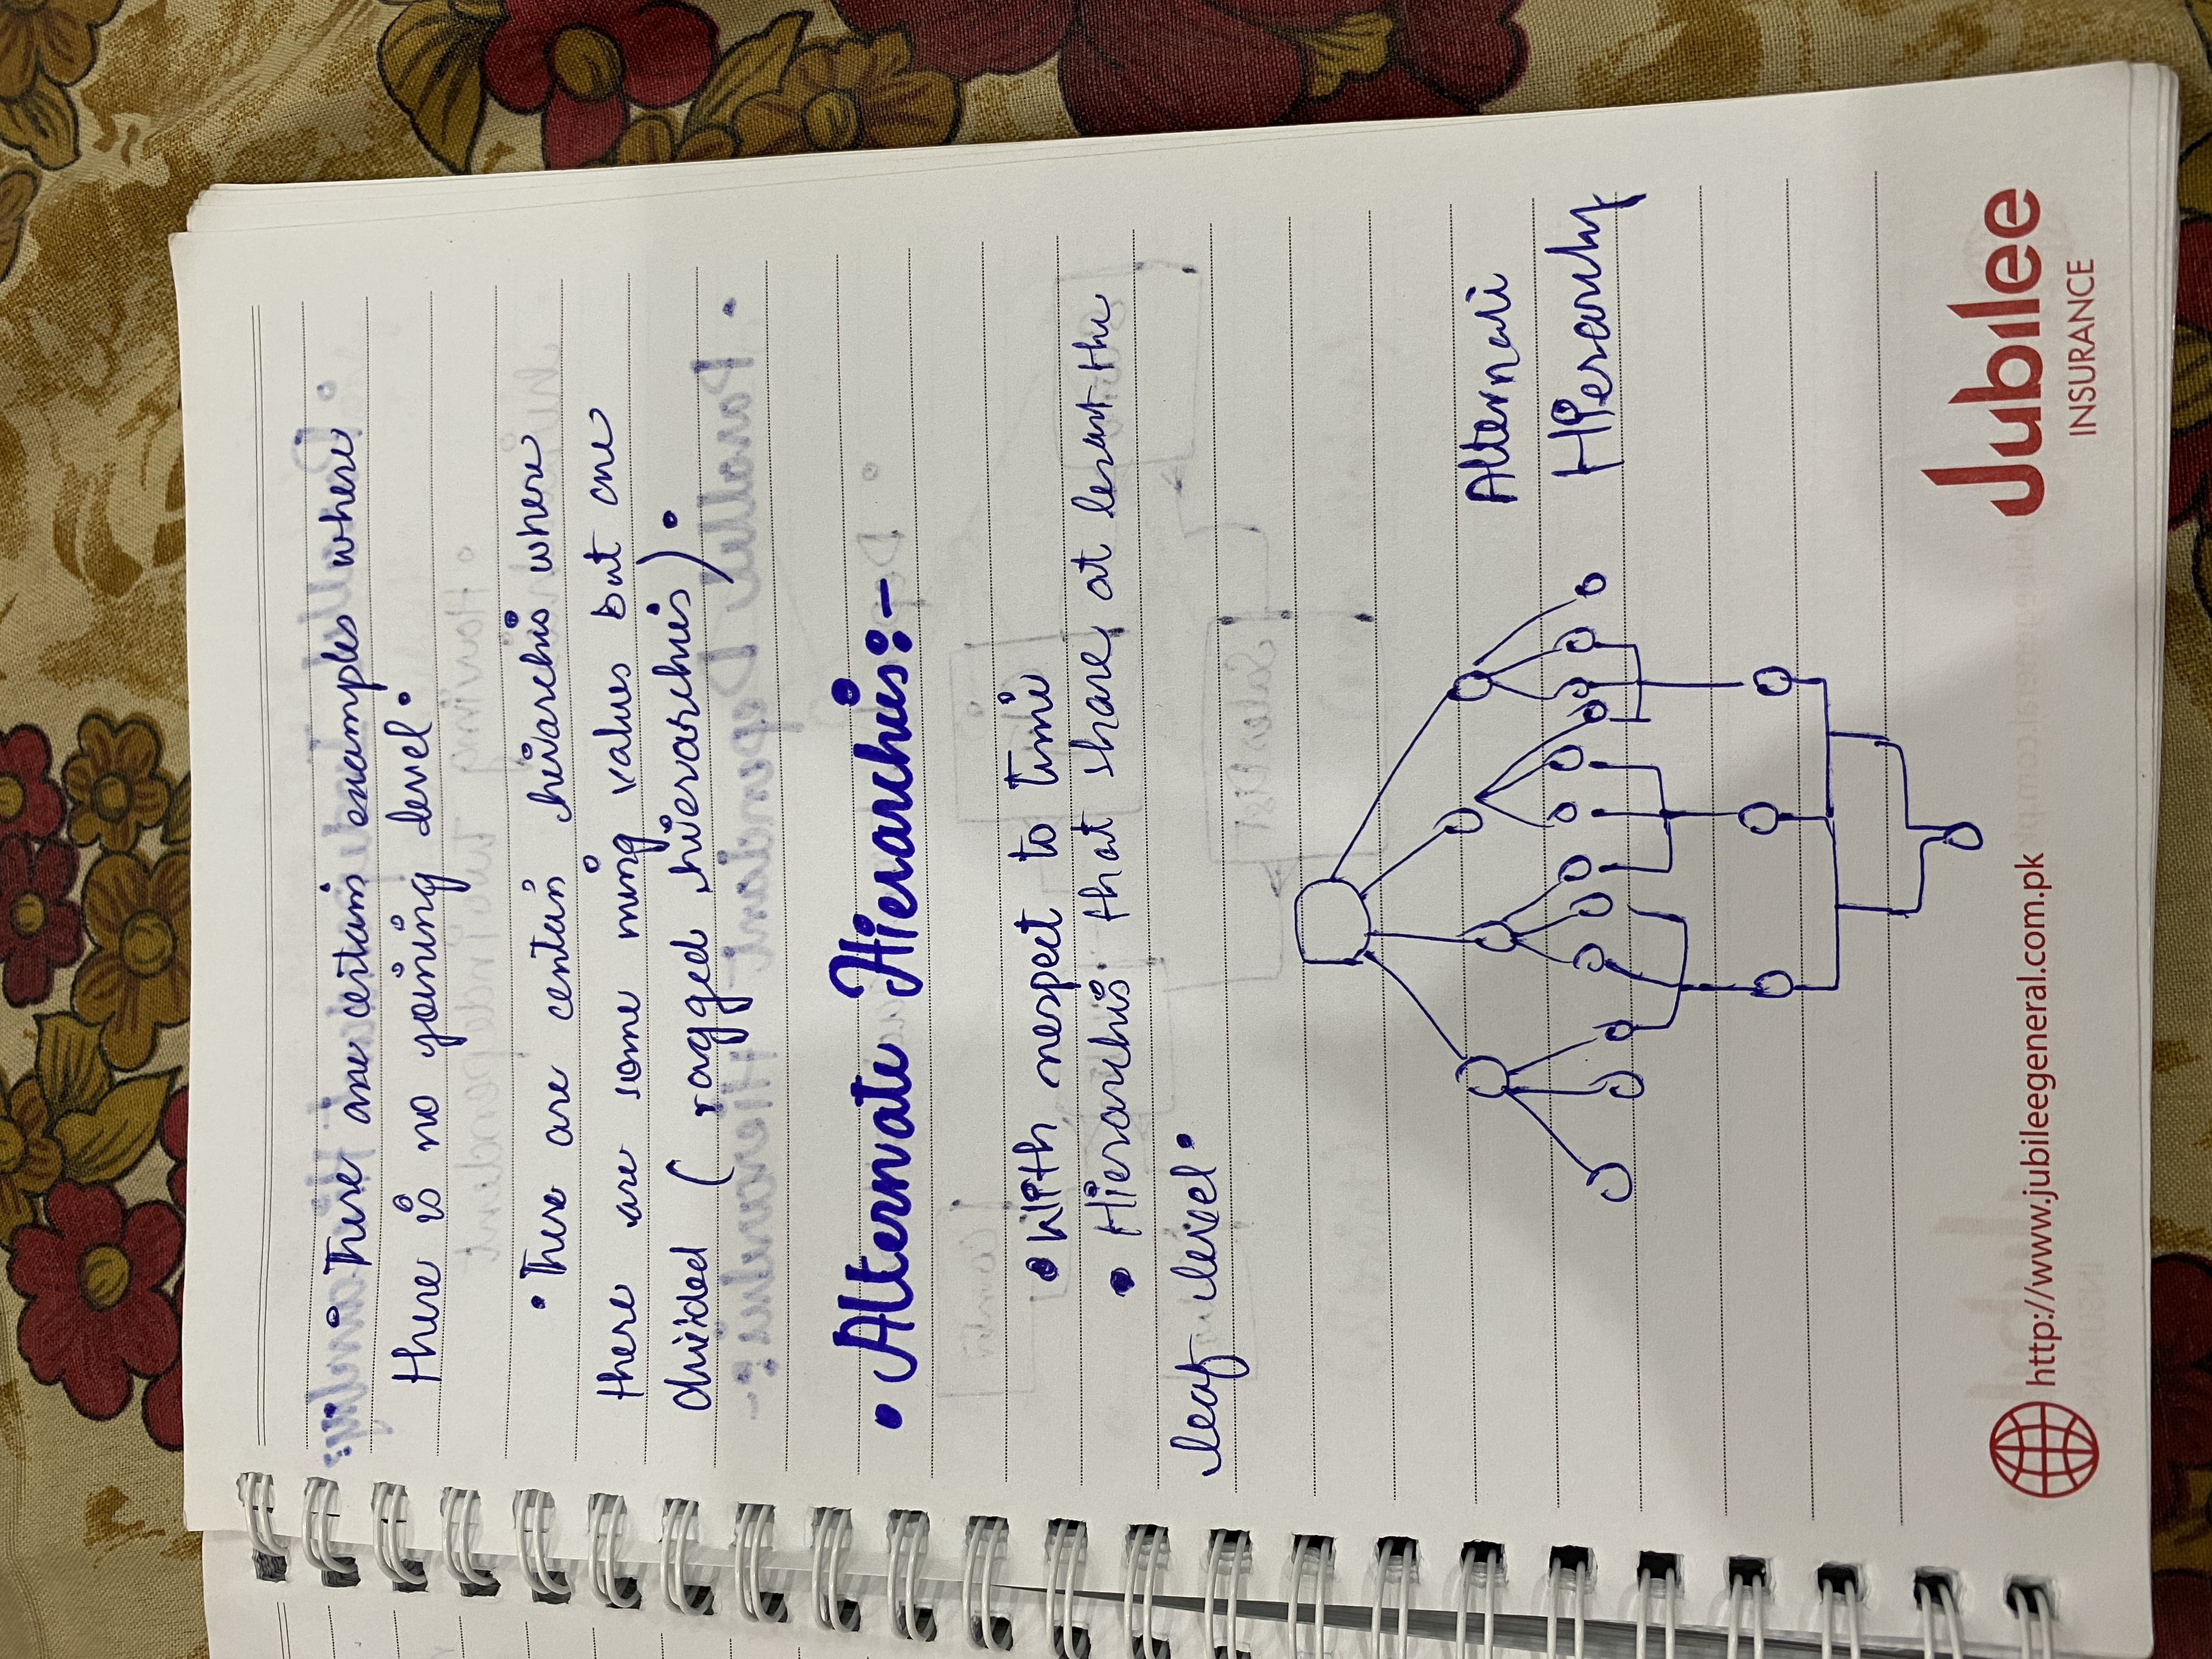 • There are certain examples where
there is no joining level.
• There are certain hierarchis where
there are some values but are
divided ( ragged hierarchies).
• Alternate Hierarchies:-
• With respect to time
• Hierarchis that share at least the
leaf level.
Alternate
Hierarchy
http://www.jubileegeneral.com.pk
Jubilee
INSURANCE